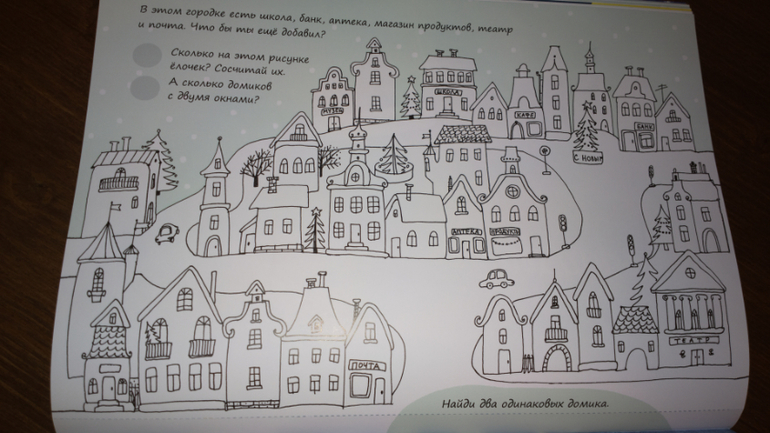 В этом городке есть школа, банк, аптека, магазин продуктов, театр
и почта. Что бы ты ещё добавил?
Сколько на этом рисунке
ёлочек? Сосчитай их.
А сколько домиков
с двумя окнами?
МУЗЕЙ
ШКОЛА
КАФЕ
БАНК
С НОВЫМ
АПТЕКА
ПРОДУКТЫ
ТЕАТР
ПОЧТА
Найди два одинаковых домика.